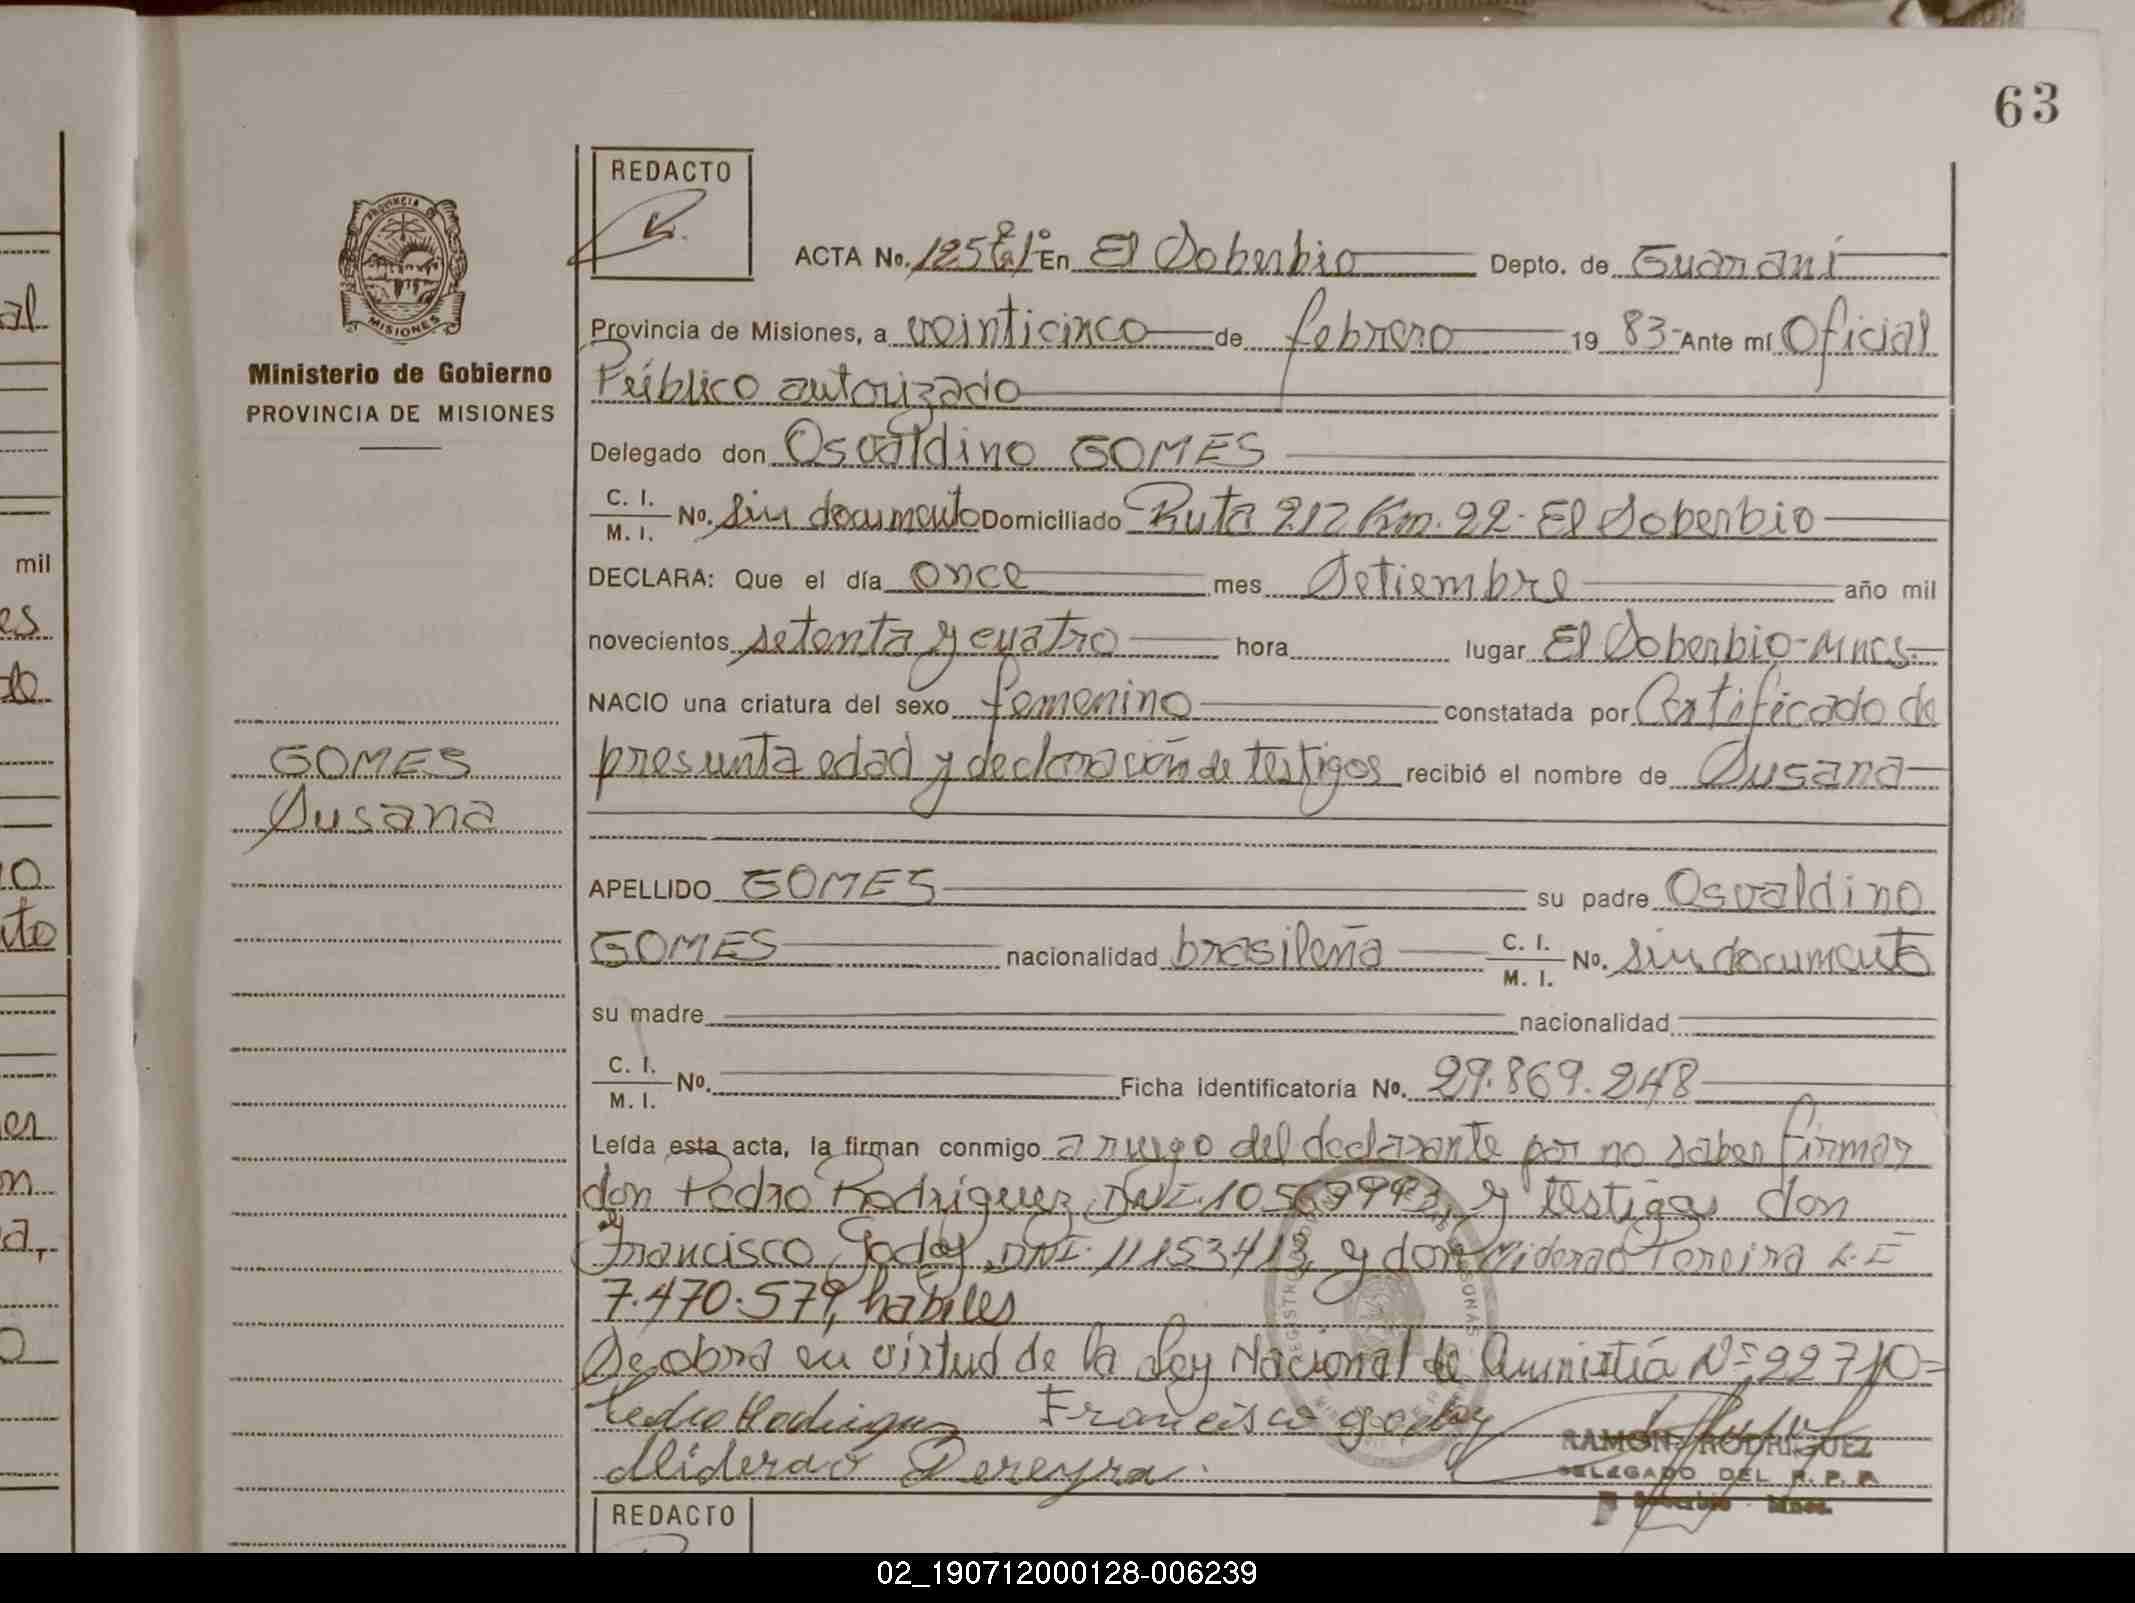 63
REDACTO
PROVINCIA DE
MISIONES
Ministerio de Gobierno
PROVINCIA DE MISIONES
ACTA No. 125 En El Soberbio Depto. de Guaraní
Provincia de Misiones, a veinticinco de febrero 19 83 Ante mí Oficial
Público autorizado
Delegado don Osvaldino GOMES
C. I.
M. I. No. sin documento Domiciliado Ruta 212 Km. 22 - El Soberbio
DECLARA: Que el día once mes Setiembre año mil
novecientos setenta y cuatro hora lugar El Soberbio-Mnes.
NACIO una criatura del sexo femenino constatada por Certificado de
presunta edad y declaración de testigos recibió el nombre de Susana
GOMES
Susana
APELLIDO GOMES su padre Osvaldino
GOMES nacionalidad brasileña C. I.
M. I. No. sin documento
su madre nacionalidad
C. I.
M. I. No. Ficha identificatoria No. 29.869.248
Leída esta acta, la firman conmigo a ruego del declarante por no saber firmar
don Pedro Rodriguez, DNI. y testigos don
Francisco Godoy, DNI. 11153413, y don Miderao Pereira L.E
7.470.579, habiles
Se obra en virtud de la Ley Nacional de Amnistía Nº 22710=
Pedro Rodriguez Francisco godoy
Miderao Pereyra.
RAMON RODRIGUEZ
DELEGADO DEL R. P. P.
El Soberbio - Mnes.
REDACTO
mil
02_190712000128-006239